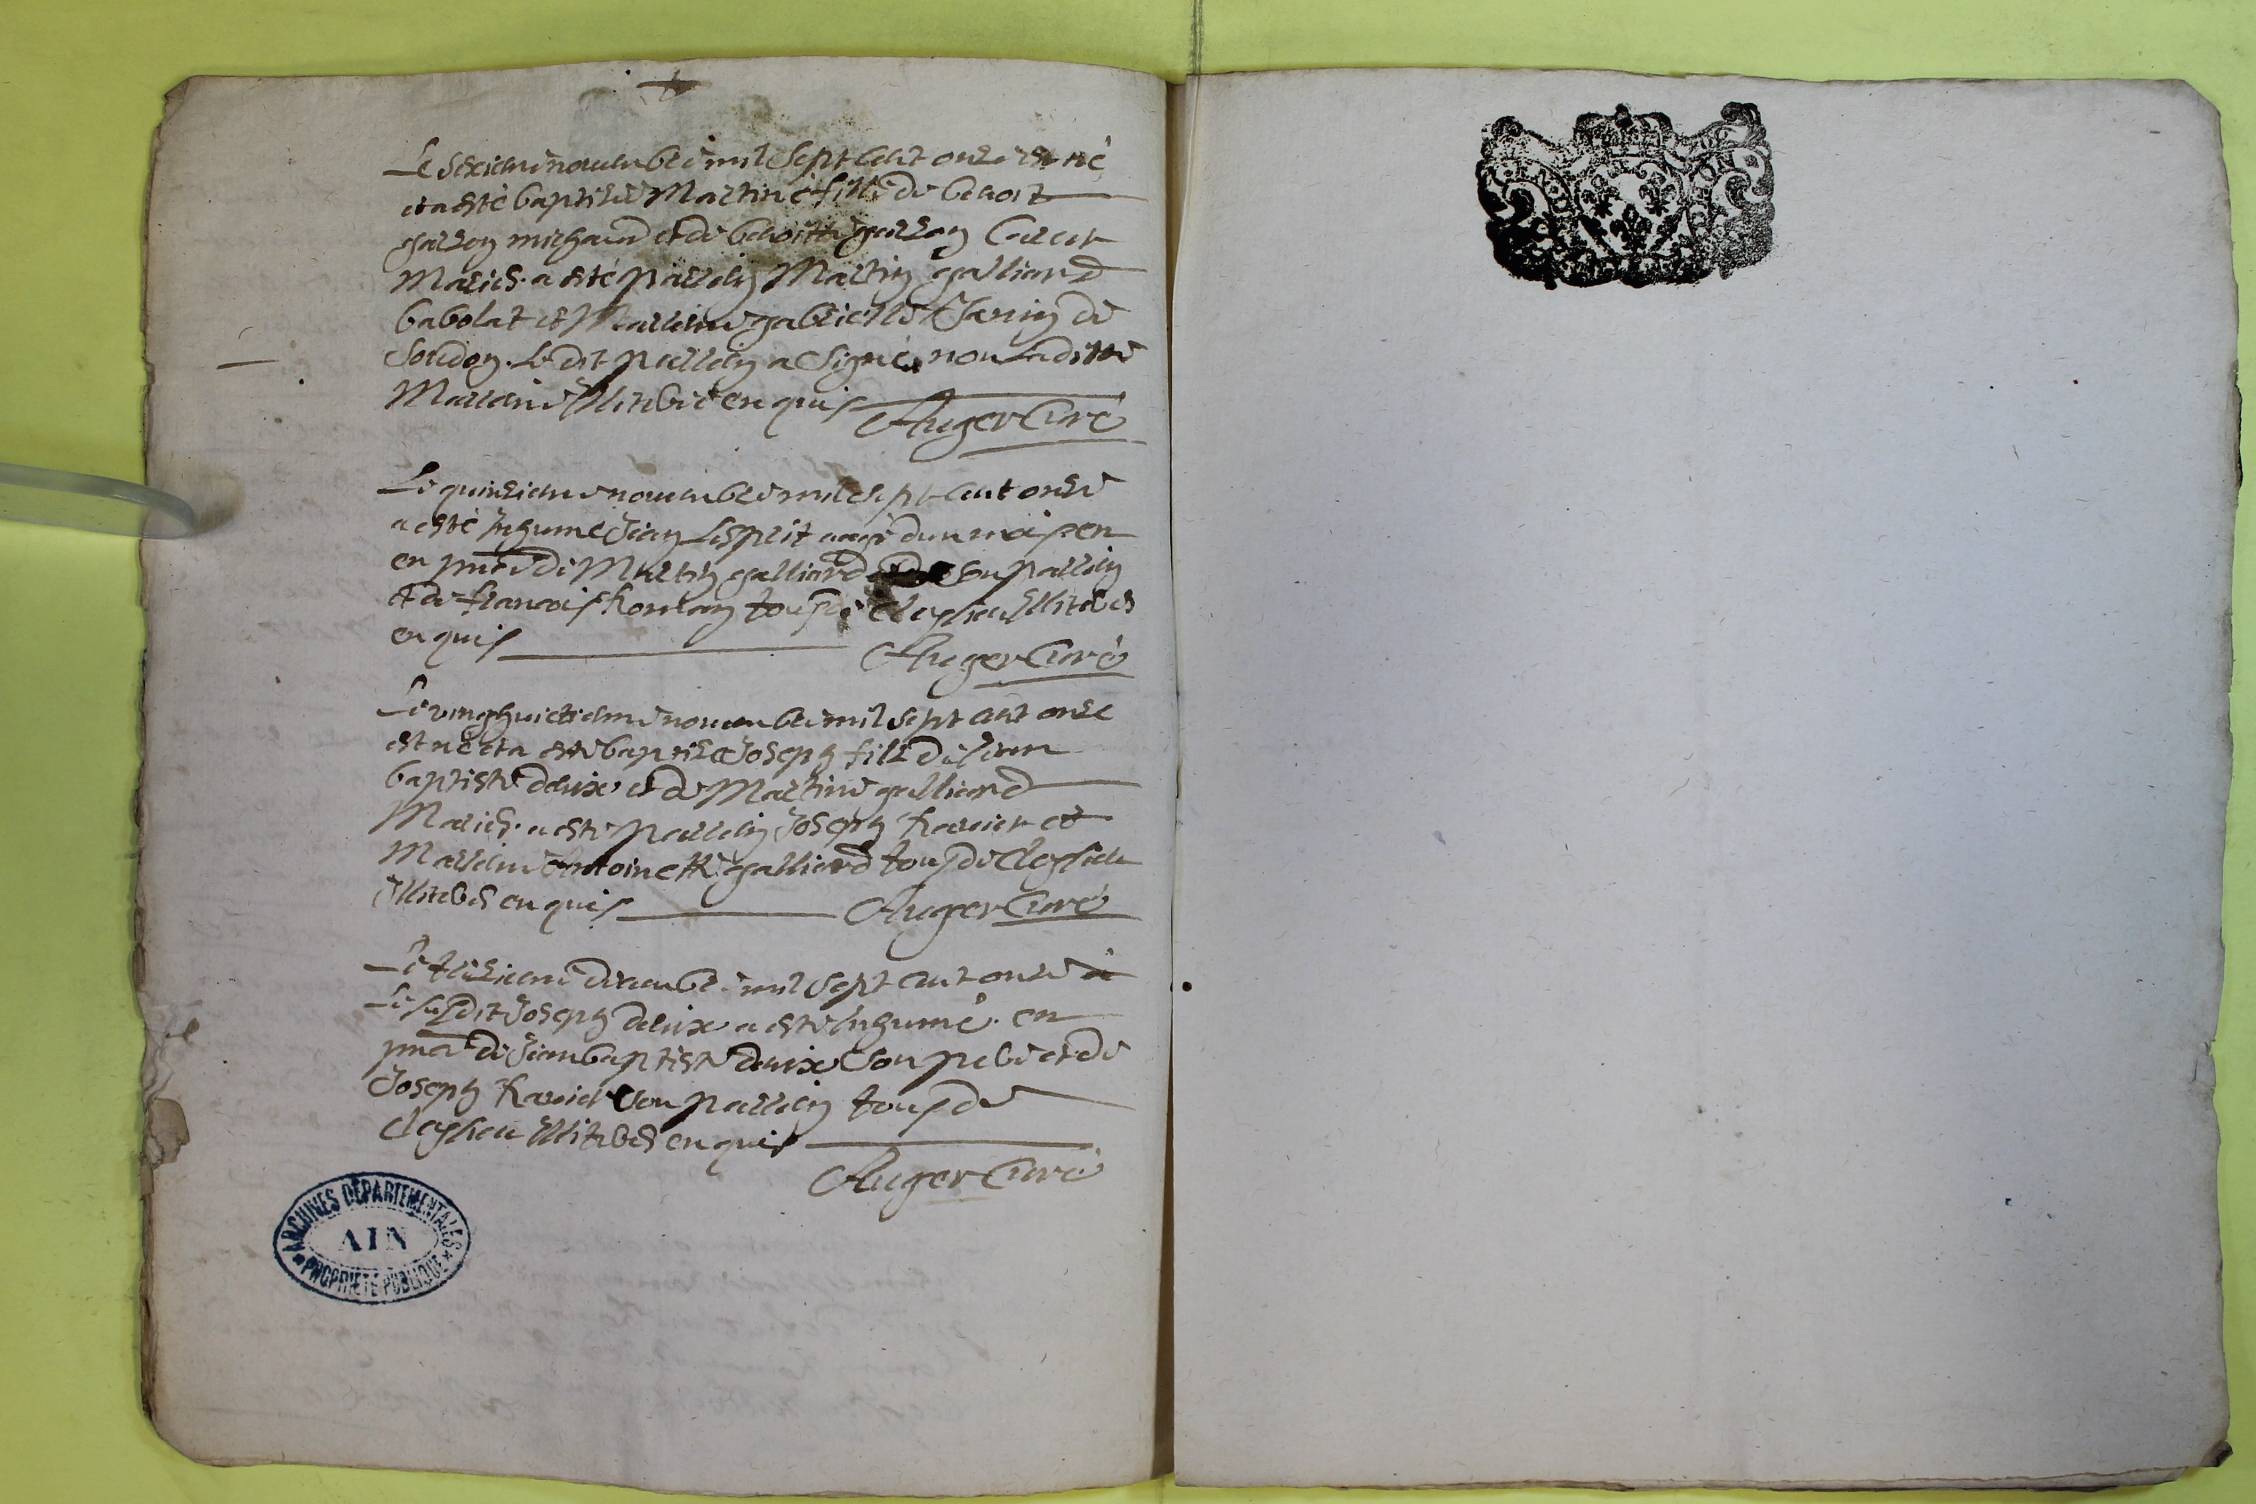 Le sixieme novembre mil sept cent onze est né
et a esté baptisée Martine fille de benoit
garson michaud et de benoitte garson
Mariés. a esté parrein Martin galliard
babolat et Marreine gabrielle Janin de
Soudon. le dit parrein a signé, non la ditte
Marreine illiterée enquis
Auger Curé
Le quinzieme novembre mil sept cent onze
a esté inhumé Jean Lesprit aagé dun mois en
en pnce de Martin galliard son parrein
et de francois tous de Cleyzieu illiterés
enquis
Auger Curé
Le vinghuictieme novembre mil sept cent onze
est né et a esté baptisé Joseph fils de Jean
baptiste deux et de Martine galliard
Mariés. a esté parrein Joseph Ravier et
Marreine antoinette galliard tous de Cleyzieu
illiterés enquis
Auger Curé
Le treizieme decembre mil sept cent onze
Le susdit Joseph deux a esté inhumé. en
pnce de Jean baptiste deux son pere et de
Joseph Ravier son parrein tous de
Cleyzieu illiterés enquis
Auger Curé
ARCHIVES DÉPARTEMENTALES
AIN
PROPRIÉTÉ PUBLIQUE